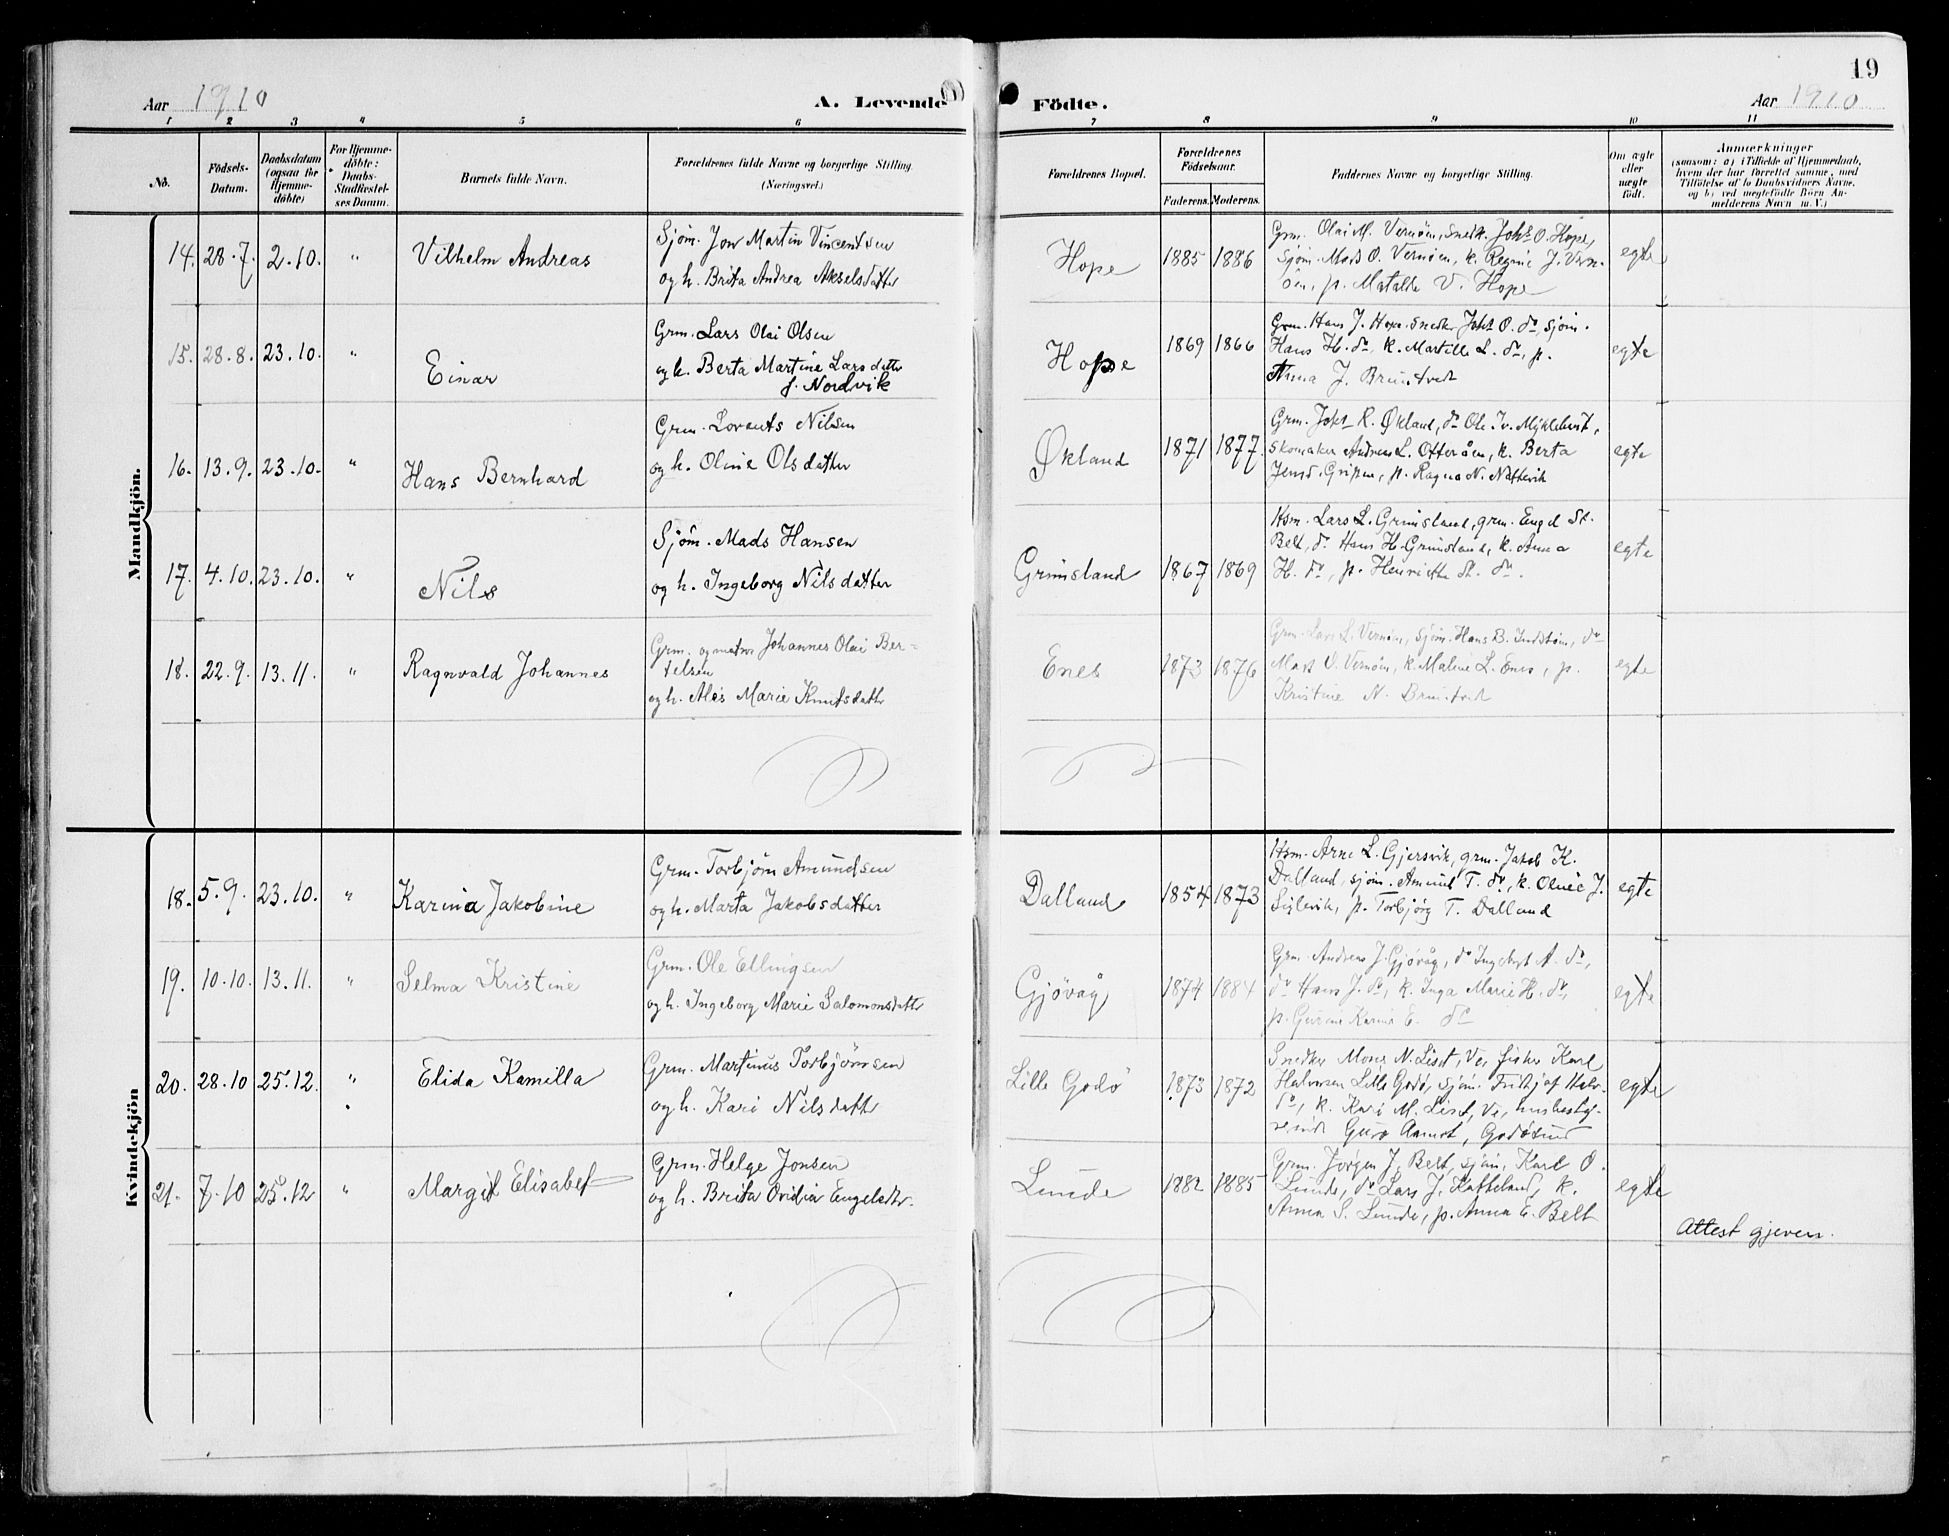 19
Aar 1910
A. Levende Födte.
Aar 1910
1 2 3 4 5 6 7 8 9 10 11
No.
Födsels-
Datum.
Daabsdatum
(ogsaa for
Hjemme-
døbte)
For Hjemme-
döbte:
Daabs-
Stadfæstel-
ses Datum.
Barnets fulde Navn.
Forældrenes fulde Navne og borgerlige Stilling.
(Næringsvei.)
Forældrenes Bopæl.
Forældrenes
Födselsaar.
Faderens. Moderens.
Faddernes Navne og borgerlige Stilling.
Om ægte
eller
uægte
födt.
Anmærkninger
(saasom: a) i Tilfælde af Hjemmedaab,
hvem der har forrettet samme, med
Tilföielse af to Daabsvidners Navne,
og b) ved uægtefödte Börn An-
melderens Navn m. V.)
Mandkjön.
14. 28.7. 2.10. " Vilhelm Andreas
Sjöm. Jon Martin Vincentsen
og h. Brita Andrea Akselsdatter
Hope 1885 1886
Grm. Olai M. Vernöen, snedk. Johs O. Hope,
Sjöm. Mads O. Vernöen, k. Regine J. Vern-
öen, p. Matalde V. Hope
egte
15. 28.8. 23.10. " Einar
Grm. Lars Olai Olsen
og h. Berta Martine Larsdatter
f. Nordvik
Hope 1869 1866
Grm. Hans J. Hope snedker Johs O. do, sjöm.
Hans H. do, k. Martille L. do, p.
Anna J. Bruntvedt
egte
16. 13.9. 23.10. " Hans Bernhard
Grm. Lorents Nilsen
og h. Oline Olsdatter
Økland 1871 1877
Grm. Johs R. Økland, do Ole Iv. Myklehvit,
skomaker Andreas L. Otteråen, k. Berta
p. Ragna N. Nattevik
egte
17. 4.10. 23.10. " Nils
Sjöm. Mads Hansen
og h. Ingeborg Nilsdatter
Grimsland 1867 1869
Hsm. Lars L. Grimsland, grm. Engel St.
Belt, do Hans H. Grimsland, k. Anna
H. do, p. Henriette St. do.
egte
18. 22.9. 13.11. " Ragnvald Johannes
Grm. og Johannes Olai Ber-
telsen
og h. Ales Marie Knutsdatter
Enes 1873 1876
Grm. Lars L. Vernöen, sjöm. Hans B. do
Mads O. Vernöen, k. Maline L. Enes, p.
Kristine N. Bruntvedt
egte
Kvindekjön
18. 5.9. 23.10. " Karina Jakobine
Grm. Torbjörn Amundsen
og h. Marta Jakobsdatter
Dalland 1854 1873
Hsm. Arne L. Gjersvik, grm. Jakob K.
Dalland, sjöm. Amund T. do, k. Oline J.
Siglevik, p. Torbjörg T. Dalland
egte
19. 10.10. 13.11. " Selma Kristine
Grm. Ole Ellingsen
og h. Ingeborg Marie Salomonsdatter
Gjövåg 1874 1884
Grm. Andreas J. Gjövåg, do Ingebrigt A. do,
do Hans J. do, k. Inga Marie H. do,
p. Gurine Karine E. do
egte
20. 28.10 25.12. " Elida Kamilla
Grm. Martinus Torbjörnsen
og h. Kari Nilsdatter
Lille Godö 1873 1872
Snedker Mons N. Liset, Ve, fisker Karl
Halvorsen Lille Godö, sjöm. Fritjof Halv.
do, k. Kari M. Liset, Ve, husbesty-
rerinde Guro Aamot, Godösund
egte
21. 7.10 25.12 " Margit Elisabet
Grm. Helge Jonsen
og h. Brita Ovidia Engelsdtr.
Lunde 1882 1885
Grm. Jörgen J. Belt, sjöm. Karl O.
Lunde, do Lars J. Katteland, k.
Anna S. Lunde, p. Anna E. Belt
egte
Attest gjeven.